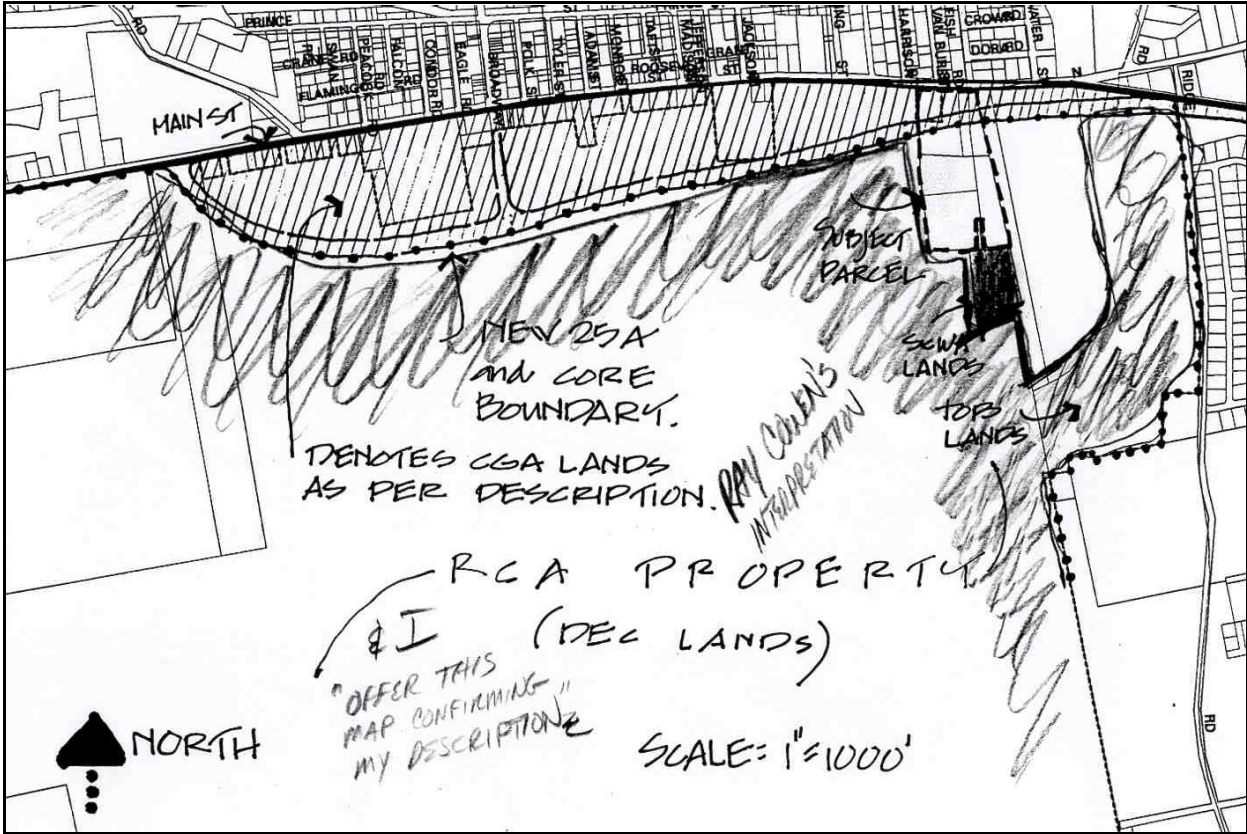 PRINCE
RD
CRANE RD
SWAN
PEACOCK RD
FALCON RD
CONDOR RD
EAGLE
BROADWAY
POLK ST
TYLER ST
ADAMS ST
MONROE
MADISON
ROOSEVELT ST
GRANT ST
JACKSON
ST
HARRISON
VAN BUREN
FISH RD
CROW RD
DORA RD
WATER
ST
N
RD
RIDGE
FLAMINGO RD
MAIN ST
SUBJECT
PARCEL
SCWA
LANDS
TOB
LANDS
NEW 25A
and CORE
BOUNDARY.
DENOTES CGA LANDS
AS PER DESCRIPTION.
RAY COWEN'S
INTERPRETATION
RCA PROPERTY
& I (DEC LANDS)
"OFFER THIS
MAP CONFIRMING"
MY DESCRIPTION
NORTH
SCALE: 1"=1000'
RD